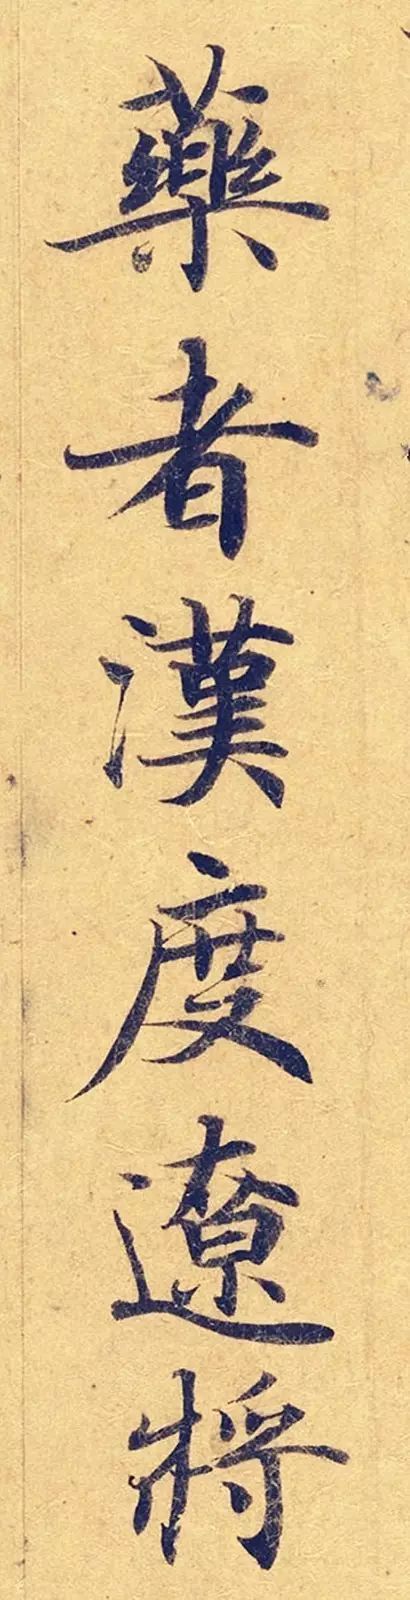 藥者漢度遼將